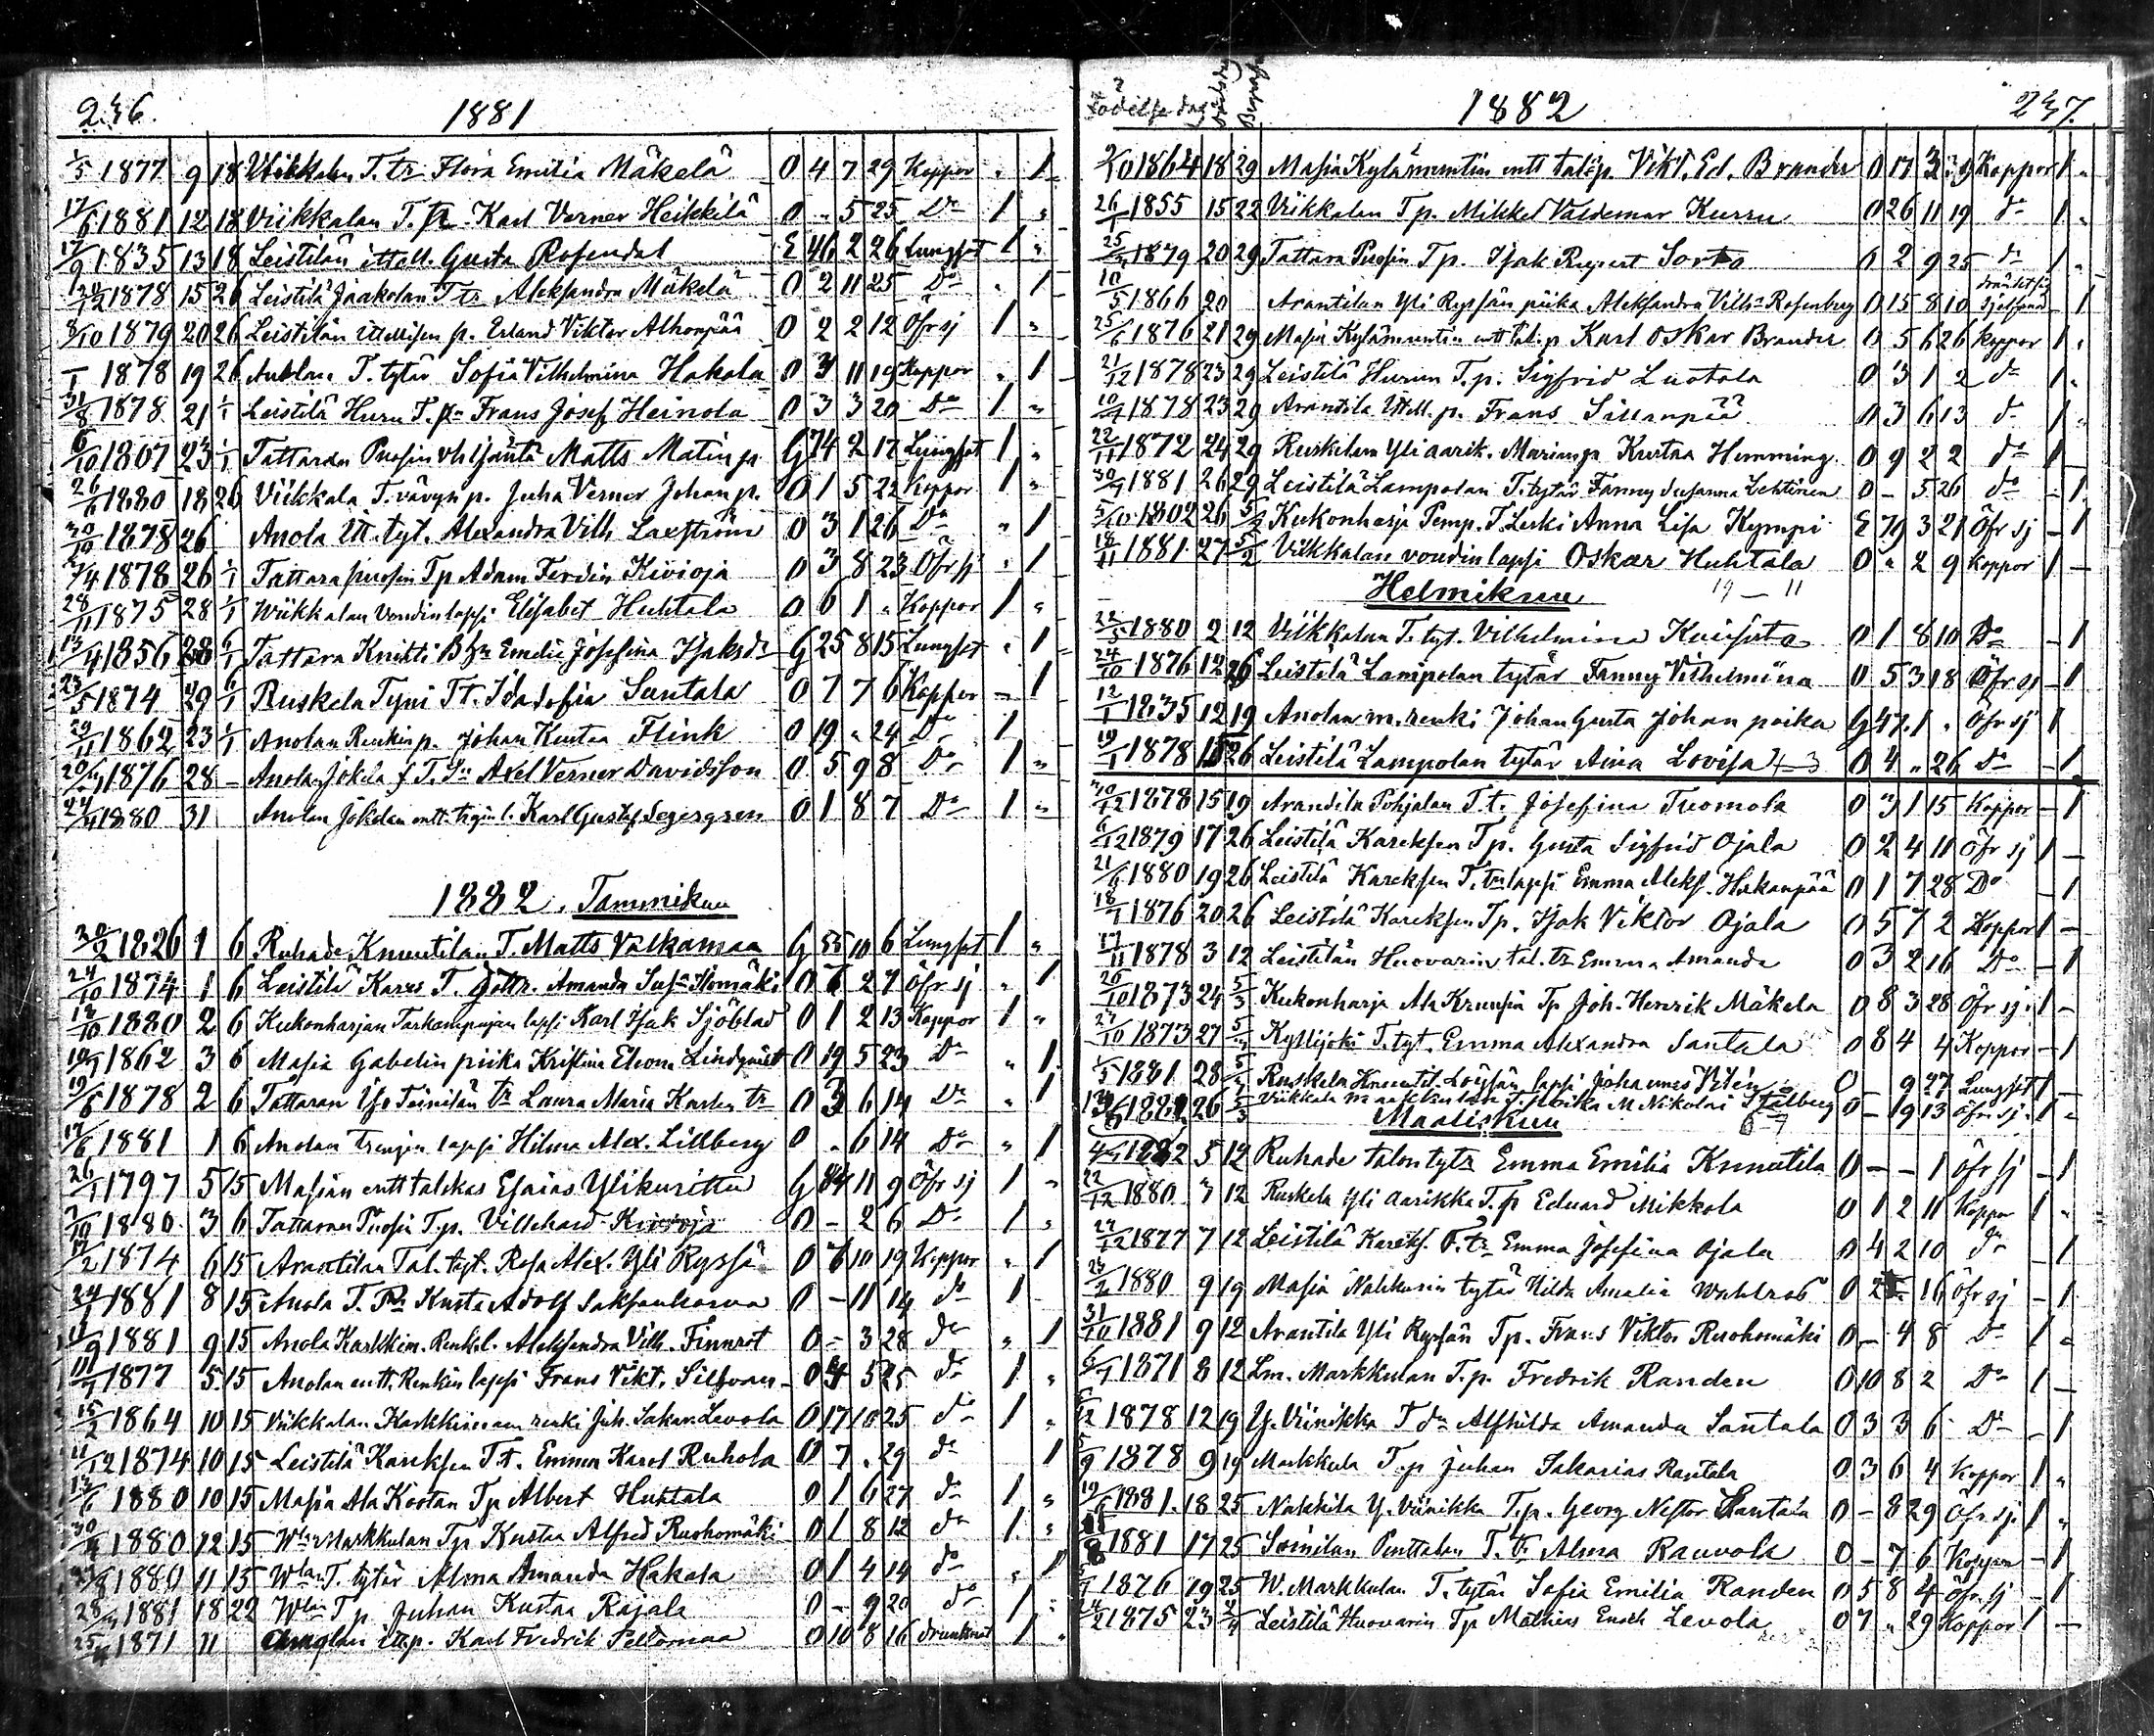 246. 1881
1/5 1877 9 18 Viikkalan T. tr Flora Emilia Mäkelä O 4 7 29 Koppor „ 1
17/6 1881 12 18 Viikkalan T. Karl Verner Heikkilä O „ 5 25 Do 1 „
17/9 1835 13 18 Leistilän ittell. Gusta Rosendal E 46 2 26 Lungsot 1 „
1878 15 26 Leistilä Jaakolan T tr Aleksandra Mäkelä O 2 11 25 Do „ 1
8/10 1879 20 26 Leistilän ittellisen p. Erland Viktor Alhonpää O 2 2 12 Öfr sj 1 „
1878 19 26 T. tytär Sofia Vilhelmina Hakala O 3 11 19 Koppor „ 1
31/8 1878 21 1/1 Leistilä Huru T. Frans Josef Heinola O 3 3 20 Do 1 „
6/10 1807 23 1/1 Tattaran Puosin Matts Matin p. G 74 2 17 Lungsot 1 „
26/6 1880 18 26 Viikkala T. vävyn p. Juha Verner Johan p. O 1 5 22 Koppor 1 „
30/10 1878 26 Anola itt. tyt. Alexandra Vilh. Laxström O 3 1 26 Do „ 1
1878 26 1/1 Tattara puosin Tp Adam Ferdin Kivioja O 3 8 23 Öfr sj 1
28/11 1875 28 1/1 Wiikkalan Voudin lapsi Elisabet Huhtala O 6 1 „ Koppor 1 „
13/4 1856 28 6/1 Tattara Knihti Emelie Josefina Isaksdr G 25 8 15 Lungsot „ 1
23/5 1874 29 6/1 Ruskela Tyni Tt. Ida Sofia Santala O 7 7 6 Koppor – 1
29/11 1862 23 1/1 Anolan Renkin p. Johan Kustaa Flink O 19 „ 24 Do 1
1876 28 – Anolan Jokela T. Axel Verner Davidsson O 5 9 8 Do 1 „
24/4 1880 31 Anolan Jokelan entt. Karl Gustaf Segergren O 1 8 7 Do 1 „
1882. Tammikuu
1826 1 6 Ruhade Knuutilan T. Matts Valkamaa G 55 10 6 Lungsot 1 „
24/10 1874 1 6 Leistilä Kares T. dottr. Amanda Ilomäki O 7 2 7 Öfr sj „ 1
18/10 1880 2 6 Kukonharjan lapsi Karl Isak Sjöblad O 1 2 13 Koppor 1 „
1862 3 6 Masia Gabelin piika Kristina Eleon. Lindqvist O 19 5 23 Do „ 1
19/6 1878 2 6 Tattaran Iso Toinilän tr Laura Maria Karlen tr O 3 6 14 Do „ 1
17/6 1881 1 6 Anolan trengin lapsi Hilma Alex. Lillberg O „ 6 14 Do „ 1
26/1 1797 5 15 Masian entt talokas Esaias Ylikuritta G 84 11 9 Öfr sj 1 „
1880 3 6 Tattaran Puosin T.p. Villehard Kivioja O – 2 6 Do 1 „
17/2 1874 6 15 Arantilan Tal. tyt. Rosa Alex. Yli Ryssä O 7 10 19 Koppor „ 1
24/1 1881 8 15 Anola T. Kusta Adolf O – 11 14 do 1
11/9 1881 9 15 Anola Renk.l. Aleksandra Vilh. Finnert O – 3 28 do „ 1
1877 5 15 Anolan entt. Renkin lapsi Frans Vikt. O 4 5 25 do 1 „
15/2 1864 10 15 Viikkalan renki Joh. Sakar. Levola O 17 10 25 do 1 „
11/12 1874 10 15 Leistilä Kareksen T. t. Emma Karol Ruhola O 7 „ 29 do 1
13/6 1880 10 15 Masia Ala Kootan Tp Albert Huhtala O 1 6 27 do 1 „
30/4 1880 12 15 Wlan Markkulan Tp Kustaa Alfred Ruohomäki O 1 8 12 do 1 „
1880 11 15 Wlan T. tytär Alma Amanda Hakala O 1 4 14 do „ 1
28/3 1881 18 22 Wlan T p. Juhan Kustaa Rajala O – 9 20 do 1 „
25/4 1871 11 itt.p. Karl Fredrik Peltomaa O 10 8 16 drunknat 1 „
Födelse dag Dödsdag Begrafn. 1882 247.
1864 18 29 Masia Kylämuntin entt talo p. Vikt. Ed. Brander O 17 3 9 Koppor 1 „
26/1 1855 15 22 Viikkalan T p. Mikkel Valdemar Kurru O 26 11 19 do 1 „
25/3 1879 20 29 Tattara Puosin T p. Isak Rupert Sorta O 2 9 25 do 1 „
10/5 1866 20 Arantilan Yli Ryssän piika Aleksandra Vilh:a Rosenberg O 15 8 10 dränkt sig sjelfvand 1
25/6 1876 21 29 Masia Kylämuntin entt tal. p Karl Oskar Brander O 5 6 26 koppor 1 „
21/12 1878 23 29 Leistilä Hurun T. p. Sigfrid Luotola O 3 1 2 do 1 „
10/7 1878 23 29 Arantila ittell. p. Frans Sillanpää O 3 6 13 do 1 „
22/11 1872 24 29 Ruskelan Yli aarik. Marian p Kustaa Hemming O 9 2 2 do 1
30/7 1881 26 29 Leistilä Lampolan T. tytär Fanny Susanna Lehtinen O – 5 26 do – 1
5/10 1802 26 5/2 Kukonharja Pemp. T. Leski Anna Lisa Kymppi E 79 3 21 Öfr sj – 1
18/11 1881 27 5/2 Viikkalan voudin lapsi Oskar Huhtala O „ 2 9 koppor 1 –
Helmikuu 19 – 11
22/5 1880 2 12 Viikkalan T. tyt. Vilhelmina O 1 8 10 Do – 1
24/10 1876 12 26 Leistilä Lampolan tytär Fanny Vilhelmina O 5 3 18 Öfr sj – 1
12/1 1835 12 19 Anolan m. renki Johan Gusta Johan poika G 47 1 „ Öfr sj 1
19/1 1878 15 26 Leistilä Lampolan tytär Aina Lovisa 4–3 O 4 „ 26 Do – 1
1878 15 19 Arandila Pohjalan T. t. Josefina Tuomola O 3 1 15 Koppor – 1
6/12 1879 17 26 Leistilä Kareksen T p. Gusta Sigfrid Ojala O 2 4 11 Öfr sj 1 –
21/6 1880 19 26 Leistilä Kareksen T. lapsi Emma Aleks. Hakanpää O 1 7 28 Do – 1
18/7 1876 20 26 Leistilä Kareksen T p. Isak Viktor Ojala O 5 7 2 Koppor 1 –
17/11 1878 3 12 Leistilän Huovarin tal. tr Emma Amanda O 3 2 16 Do – 1
26/10 1873 24 5/3 Kukonharja Ala Krunsin Tp Joh. Henrik Mäkela O 8 3 28 Öfr sj. 1 –
27/10 1873 27 5/3 Kyllijoki T. tyt. Emma Alexandra Santala O 8 4 4 Koppor – 1
1/5 1881 28 5/3 Ruskela Knuutil. lapsi Johannes O – 9 27 Lungsot 1
26 5/3 Viikkala M Nikolai Stålberg O – 9 13 Öfr sj. 1 „
Maaliskuu 6–7
1882 5 12 Ruhade talon tytr Emma Emilia Knuutila O – – 1 öfr sj – 1
22/12 1880 3 12 Ruskela Yli Aarikka T. p Eduard Mikkola O 1 2 11 Koppor 1 „
27/12 1877 7 12 Leistilä Kareks. T. tr Emma Josefina Ojala O 4 2 10 do – 1
23/2 1880 9 19 Masia Nahkurin tytär Hilda Amalia Wahlroos O 2 – 16 öfr sj – 1
31/10 1881 9 12 Arantila Yli Ryssän Tp. Frans Viktor Ruohomäki O – 4 8 Do 1 „
6/7 1871 8 12 Lm. Markkulan T. p. Fredrik Randen O 10 8 2 Do 1 –
1878 12 19 Y. Viinikka T dr Alfhilda Amanda Santala O 3 3 6 Do – 1
5/9 1878 9 19 Markkula T. p Juhan Sakarias Rantala O 3 6 4 Koppor 1 „
19/6 1881. 18 25 Nakkila Y. Viinikka T. p. Georg Nestor Santala O – 8 29 Öfr. sj. 1 „
1881 17 25 Soinilan Penttalan T. tr Alma Rauvola O – 7 6 Koppor – 1
1876 19 25 W. Markkulan T. tytär Sofia Emilia Randen O 5 8 4 öfr. sj – 1
1875 23 Leistilä Huovarin Tp Mathias Enoch Levola O 7 „ 29 Koppor 1 –